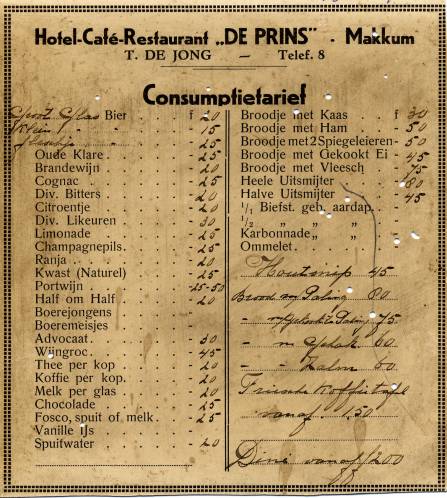 Hotel-Café-Restaurant „DE PRINS" - Makkum
T. DE JONG — Telef. 8
Consumptietarief
Groot Glas Bier f 20
Klein " " 15
flesch 25
Oude Klare 25
Brandewijn 20
Cognac 25
Div. Bitters 20
Citroentje 20
Div. Likeuren 30
Limonade 25
Champagnepils. 25
Ranja 20
Kwast (Naturel) 25
Portwijn 25-50
Half om Half 20
Boerejongens
Boeremeisjes
Advocaat 30
Wijngroc 45
Thee per kop 20
Koffie per kop. 20
Melk per glas 20
Chocolade 25
Fosco, spuit of melk 25
Vanille IJs
Spuitwater 20
Broodje met Kaas f 30
Broodje met Ham 50
Broodje met 2 Spiegeleieren 50
Broodje met Gekookt Ei 45
Broodje met Vleesch 75
Heele Uitsmijter 80
Halve Uitsmijter 45
1/1 Biefst. geb. aardap.
1/2 „ „ „
Karbonnade „ „
Ommelet
Houtsnip 45
Brood m Paling 80
" m Gerookte Paling 75
- m 60
- - Zalm 60
Friesche Koffietafel
vanaf 1.50
Diné vanaf f 2.00